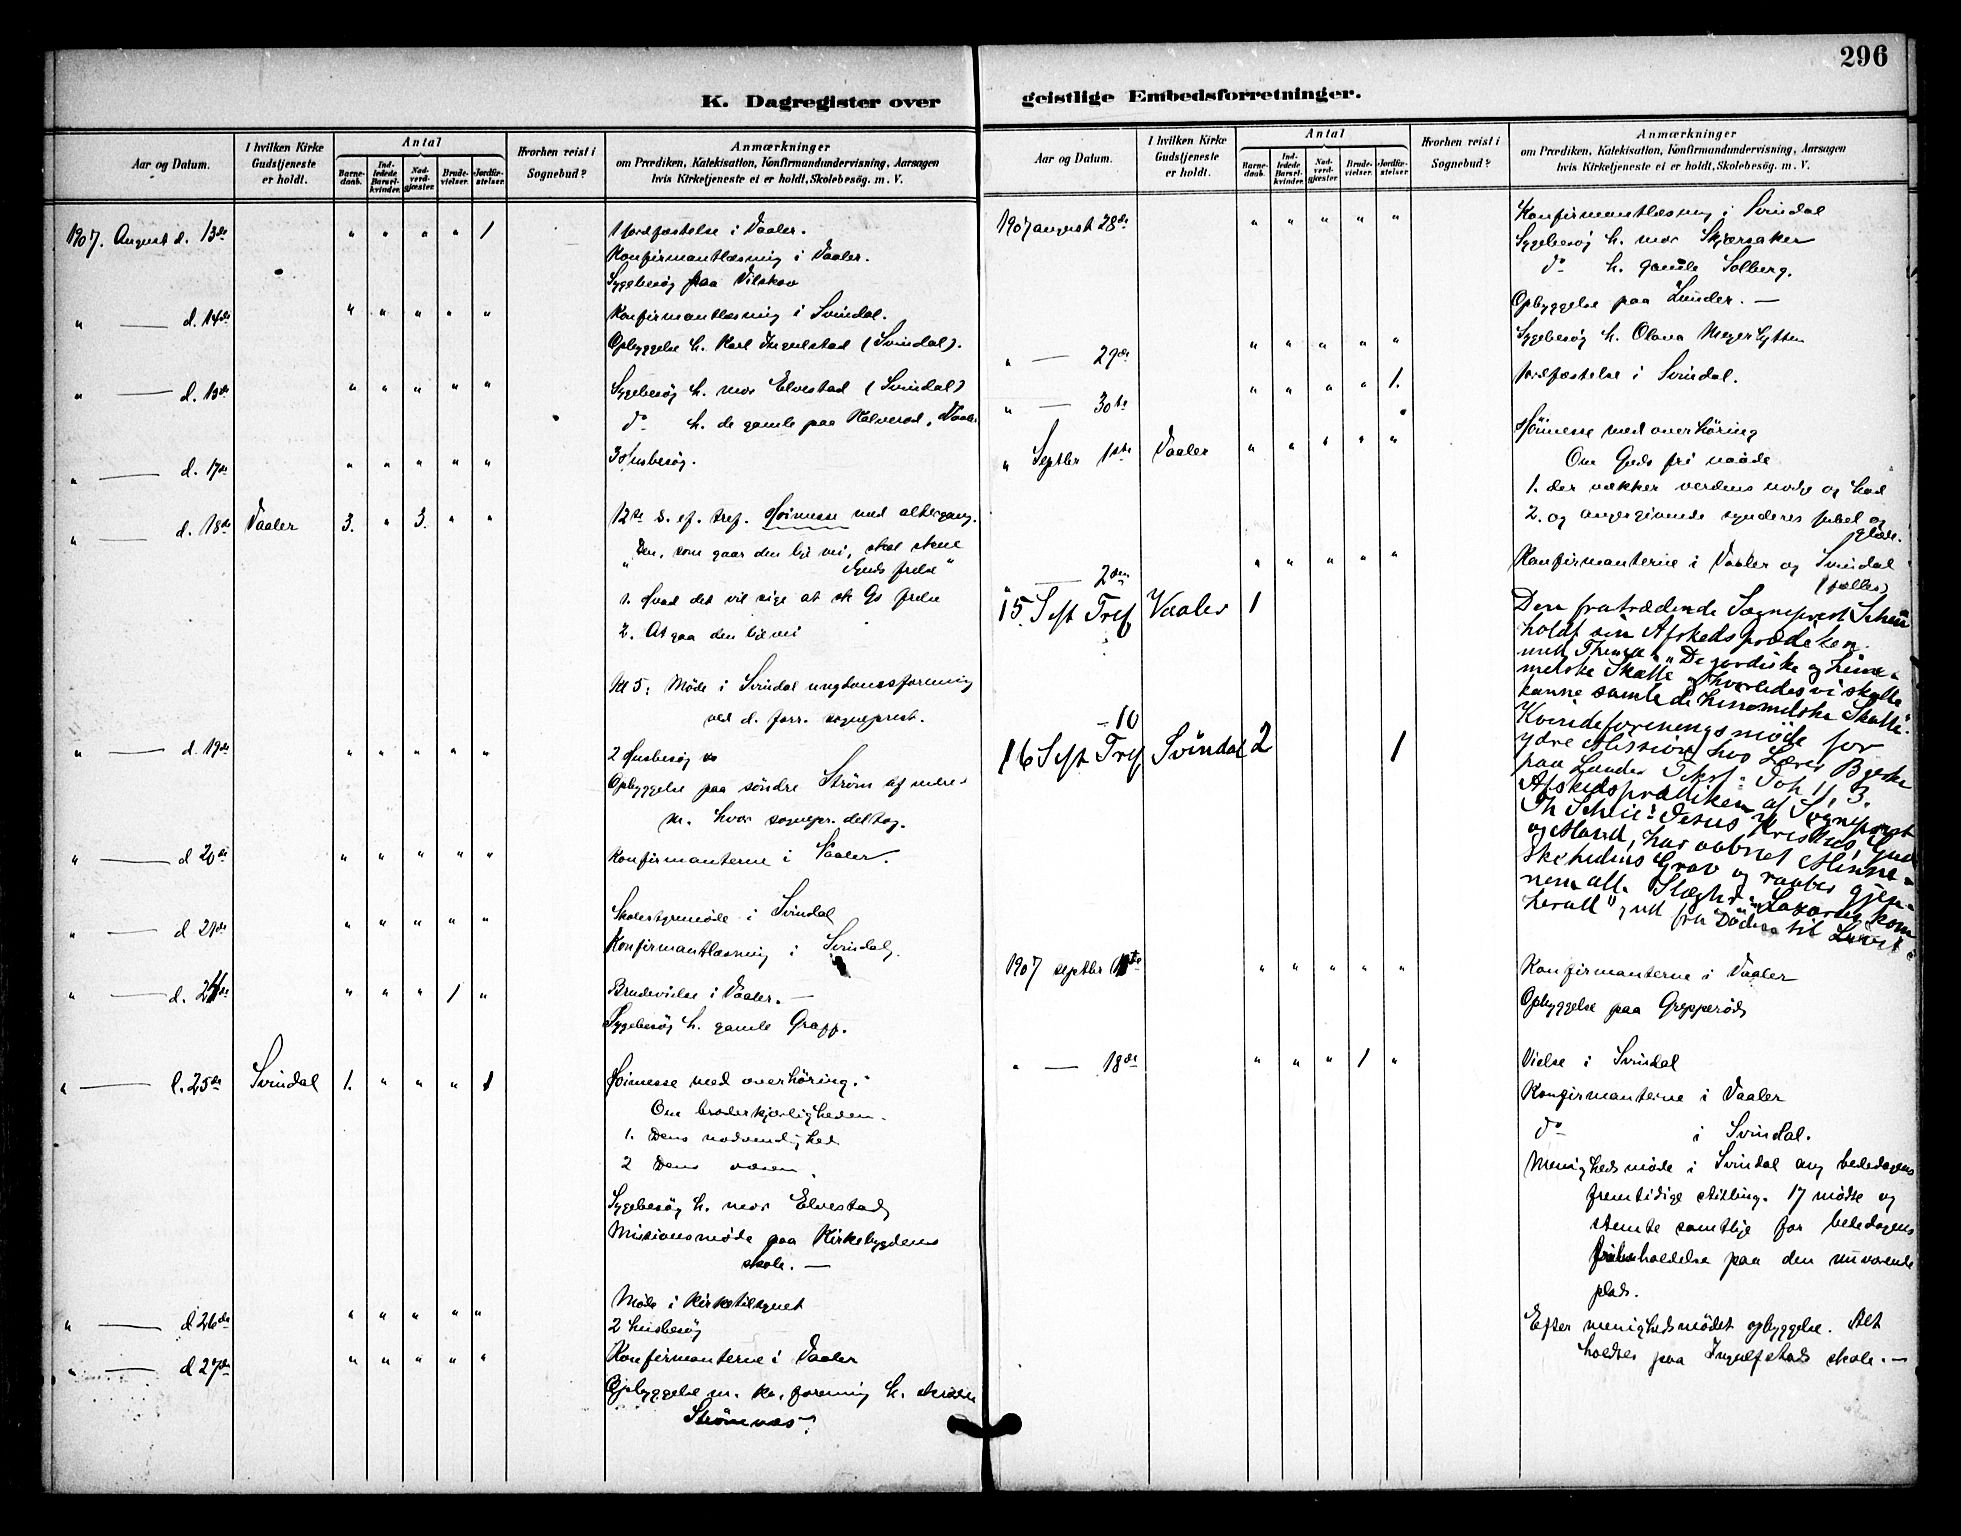 296
K. Dagregister over
Aar og Datum.
I hvilken Kirke Gudstjeneste er holdt.
Antal
Barne-daab.
Ind-ledede Barsel-kvinder.
Nad-verd-gjæster
Brude-vielser.
Jordfæ-stelser
Hvorhen reist i Sognebud?
Anmærkninger
om Prædiken, Katekisation, Konfirmandundervisning, Aarsagen
hvis Kirketjeneste ei er holdt, Skolebesøg. m. V.
1907. August d. 13de " " " " 1 1 Jordfæstelse i Vaaler.
Konfirmantlæsning i Vaaler.
Sygebesøg paa Vilskov
" — d. 14de " " " " " Konfirmantlæsning i Svindal.
Opbyggelse h. Karl Ingulstad (Svindal).
" — d. 15de " " " " " Sygebesøg h. mor Elvestad (Svindal)
do h. de gamle paa Halverød, Vaaler
" — d. 17de " " " " " 3 Husbesøg.
" — d. 18de Vaaler 3. " 3. " " 12te S. ef. Tref. Høimesse med altergang.
"Den, som gaar den lige vei, skal skue
Guds frelse"
1. Hvad det vil sige at se Gs frelse
2. At gaa den lige vei
Kl 5: Møde i Svindal ungdomsforening
ved d. forr. sogneprest.
" — d. 19de " " " " " 2 Husbesøg
Opbyggelse paa søndre Strøm af
hvor sognepr. deltog.
" — d 20de " " " " " Konfirmanterne i Vaaler.
" — d 21de " " " " " Skolestyremøde i Svindal
Konfirmantlæsning i Svindal.
" — d. 24de " " " 1 " Brudevielse i Vaaler. —
Sygebesøg h. gamle Grapp.
" — d. 25de Svindal 1. " " " 1 Høimesse med overhöring.
Om broderkjærligheden.
1. Dens nødvendighed
2 Dens væsen.
Sygebesøg h. mor Elvestad
Missionsmøde paa Kirkebygdens
skole. —
" — d 26de " " " " " Møde i Kirketilsynet
2 husbesøg
" — d 27de " " " " " Konfirmanterne i Vaaler
Opbyggelse m. kv. forening h.
Strømnæs.
geistlige Embedsforretninger.
Aar og Datum.
I hvilken Kirke Gudstjeneste er holdt.
Antal
Barne-daab.
Ind-ledede Barsel-kvinder.
Nad-verd-gjæster
Brude-vielser.
Jordfæ-stelser
Hvorhen reist i Sognebud?
Anmærkninger
om Prædiken, Katekisation, Konfirmandundervisning, Aarsagen
hvis Kirketjeneste ei er holdt, Skolebesøg. m. V.
1907 august 28de " " " " " Konfirmantlæsning i Svindal
Sygebesøg h. mor Skjærsaker
do h. gamle Solberg.
Opbyggelse paa Lunder. —
" — 29de " " " " " Sygebesøg h. Olava Meyer
" — 30te " " " " 1. Jordfæstelse i Svindal.
" Septbr 1ste Vaaler " " " " " Høimesse med overhöring
Om Guds fri naade
1. der vækker verdens nag og had
2. og angergivende synderes jubel og
glæde.
" — 2den " " " " " Konfirmanterne i Vaaler og Svindal
(fælles)
15. Sept Tref Vaaler 1 Den fratrædende Sogneprest Scheie
holdt sin Afskedsprædiken
med Thema: "De jordiske og him-
melske Skatte og hvorledes vi skulle
kunne samle de himmelske Skatte".
Kvindeforeningsmøde for
ydre Mission hos Lærer Bjerke
paa Lunder Tekst: Joh 11, 3.
– 10
16 Sept Tref Svindal 2 1 Afskedsprædiken af Sogneprest
Th Scheie: Jesus Kristus, Gud
og Mand, har aabnet Menne-
skehedens Grav og raaber gjen-
nem alle Slægter "Lazarus, kom
herud", ud fra Døden til Livet
1907 septbr " " " " " Konfirmanterne i Vaaler
Opbyggelse paa Grepperød
" — 18de " " " 1 " Vielse i Svindal
Konfirmanterne i Vaaler
do i Svindal.
Menighedsmøde i Svindal ang bededagens
fremtidige stilling. 17 mødte og
stemte samtlige for bededagens
holdelse paa den nuværende
plads.
Efter menighedsmødet opbyggelse. Alt
holdtes paa Ingulfstad skole. —